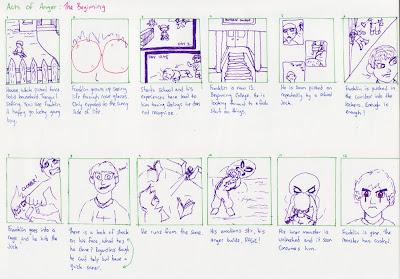 Acts of Anger: The Beginning
House white picket fence
Franklin grows up seeing
life through rose glasses,
Only exposed to the sunny
side of life.
DAY 1
Starts School and his
experiences here lead to
him having feelings he does
not recognise.
Franklin is now 13.
Beginning College. He is
looking forward to a fresh
start on things.
He is soon picked on
repeatedly by a school
Jock.
Franklin is pushed in
the corridor into the
lockers. Enough is
enough!
Franklin goes into a
rage and he hits the
Jock
there is a look of shock
on his face, what has
he done? Regardless Franklin
can't help but have a
quick sneer.
He runs from the scene.
His emotions stir, his
anger builds, RAGE!
His inner monster is
unleashed and it soon
Consumes him.
Franklin is gone, the
monster has control.